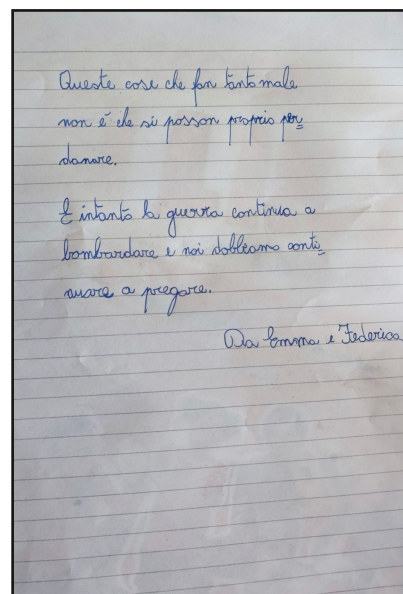 Queste cose che fan tanto male
non é che si posson proprio per=
donare.
E intanto la guerra continua a
bombardare e noi dobbiamo conti=
nuare a pregare.
Da Emma e Federica